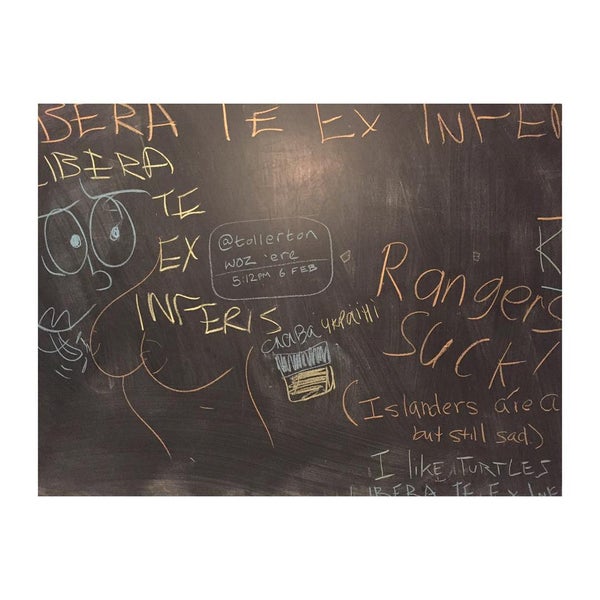 LIBERA TE EX INFE
LIBERA
TE
EX
INFERIS
@tollerton
woz 'ere
5:12PM 6 FEB
слава україні
Rangers
SUCK!
(Islanders are a
but still sad.)
I like TURTLES
LIBERA TE EX INFE